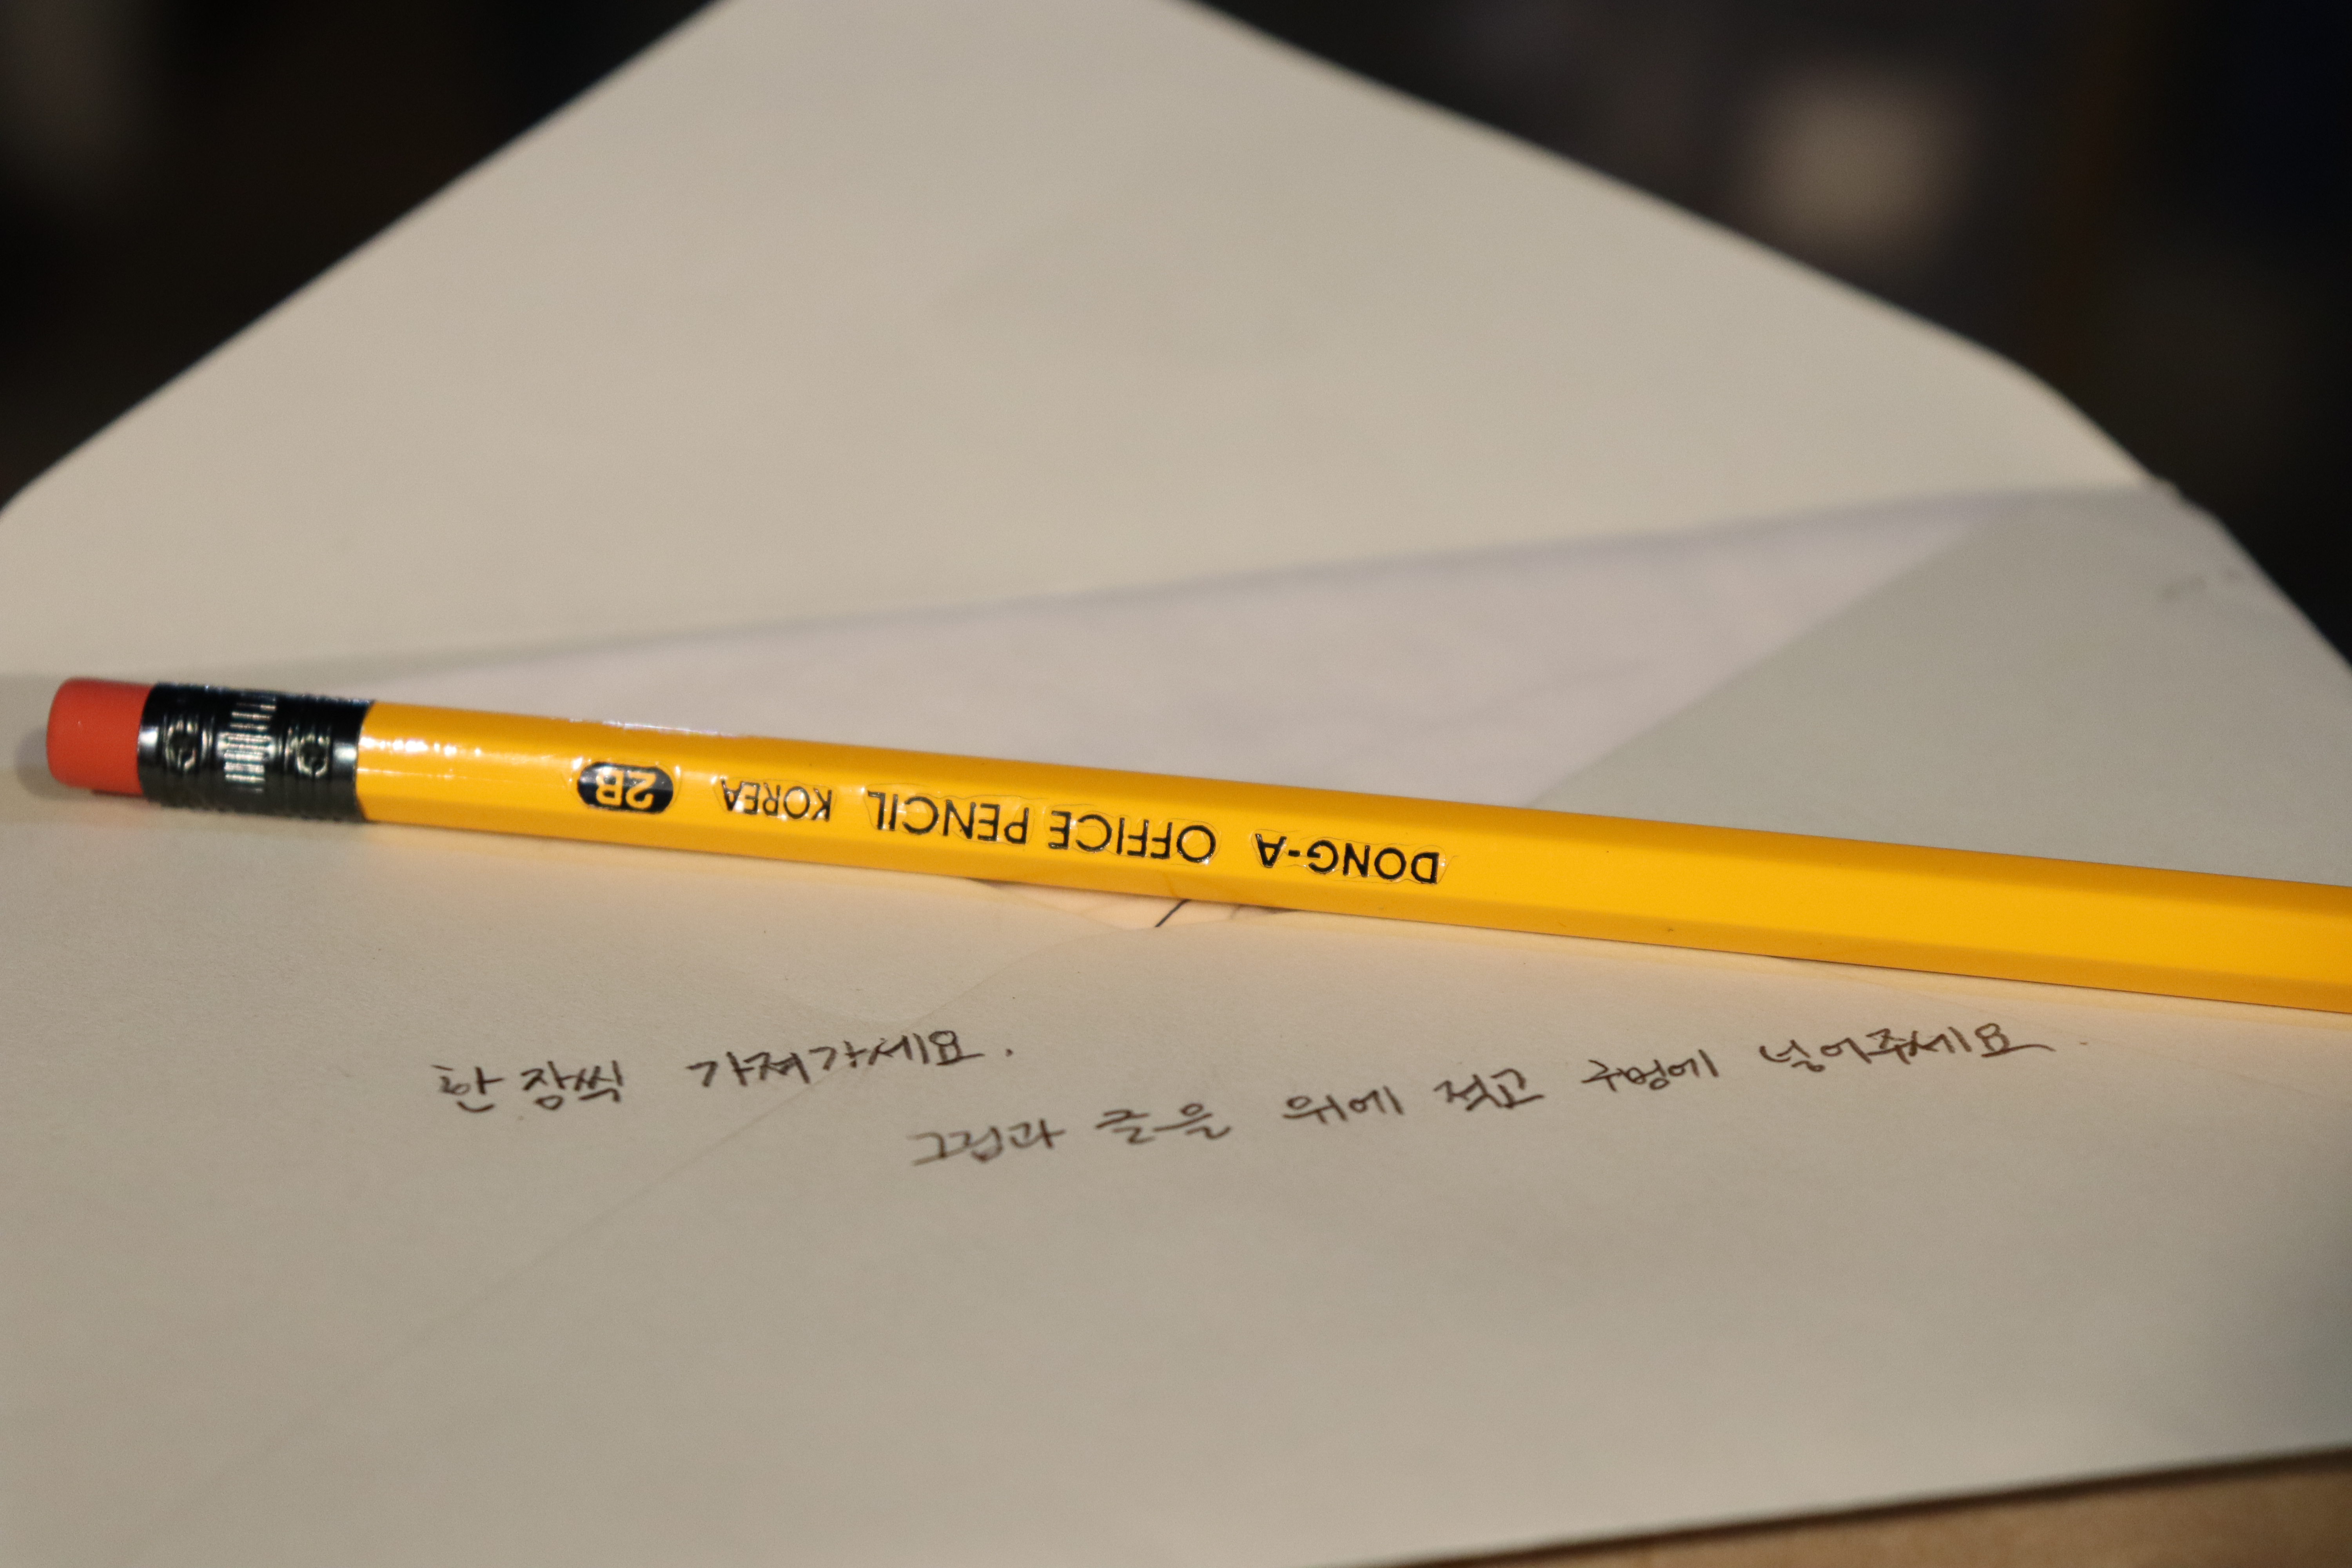 DONG-A OFFICE PENCIL KOREA 2B
한 장씩 가져가세요.
그림과 글을 위에 적고 구멍에 넣어주세요.